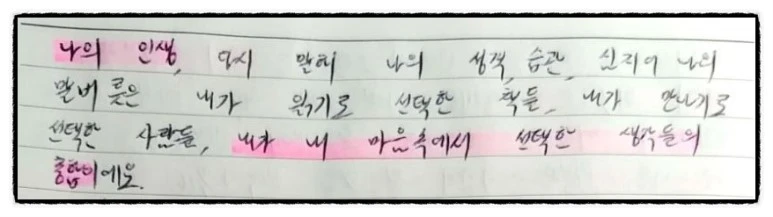 나의 인생, 다시 말해 나의 성격, 습관, 심지어 나의
말버릇은 내가 읽기로 선택한 책들, 내가 만나기로
선택한 사람들, 내가 내 마음속에서 선택한 생각들의
총합이에요.